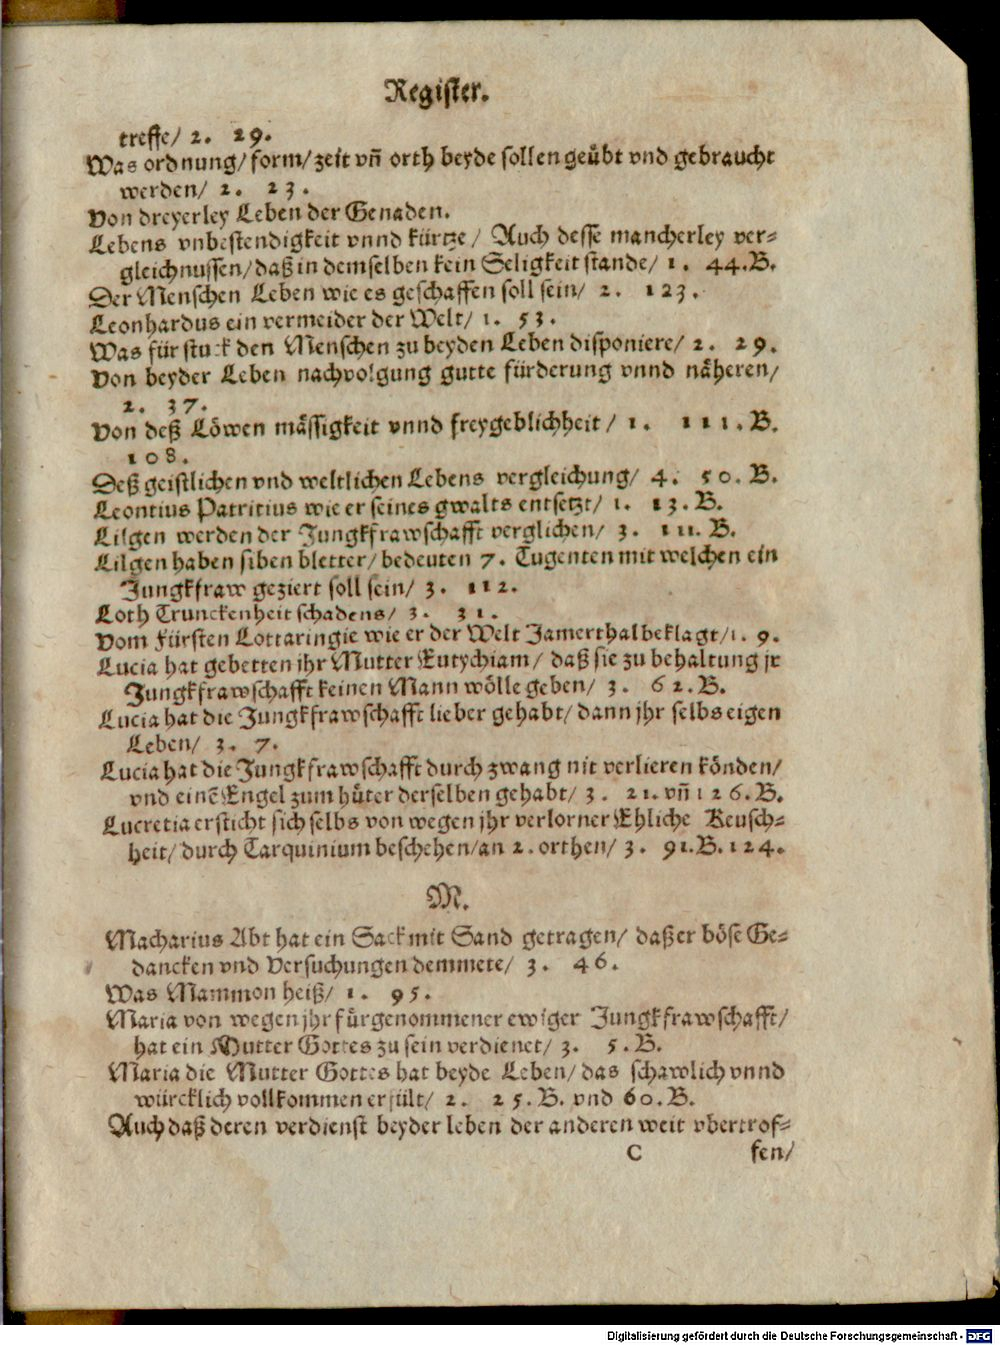 Register.
treffe/ 2. 29.
Was ordnung/ form/ zeit vñ orth beyde sollen geübt vnd gebraucht
werden/ 2. 23.
Von dreyerley Leben der Genaden.
Lebens vnbestendigkeit vnnd kürtze / Auch desse mancherley ver-
gleichnussen/ daß in demselben kein Seligkeit stande/ 1. 44.B.
Der Menschen Leben wie es geschaffen soll sein/ 2. 123.
Leonhardus ein vermeider der Welt/ 1. 53.
Was für stuck den Menschen zu beyden Leben disponiere/ 2. 29.
Von beyder Leben nachvolgung gutte fürderung vnnd näheren/
2. 37.
Von deß Löwen mässigkeit vnnd freygeblichheit / 1. 111.B.
108.
Deß geistlichen vnd weltlichen Lebens vergleichung/ 4. 50.B.
Leontius Patritius wie er seines gwalts entsetzt/ 1. 13.B.
Lilgen werden der Jungkfrawschafft verglichen/ 3. 111.B.
Lilgen haben siben bletter/ bedeuten 7. Tugenten mit welchen ein
Jungkfraw geziert soll sein/ 3. 112.
Loth Trunckenheit schadens/ 3. 31.
Vom Fürsten Lottaringie wie er der Welt Jamerthal beklagt/ 1. 9.
Lucia hat gebetten jhr Mutter Eutychiam/ daß sie zu behaltung jr
Jungkfrawschafft keinen Mann wölle geben/ 3. 62.B.
Lucia hat die Jungkfrawschafft lieber gehabt/ dann jhr selbs eigen
Leben/ 3. 7.
Lucia hat die Jungkfrawschafft durch zwang nit verlieren könden/
vnd einē Engel zum hüter derselben gehabt/ 3. 21. vñ 126.B.
Lucretia ersticht sich selbs von wegen jhr verlorner Ehliche Keusch-
heit/ durch Tarquinium beschehen/ an 2. orthen/ 3. 91.B. 124.
M.
Macharius Abt hat ein Sack mit Sand getragen/ daß er böse Ge-
dancken vnd Versuchungen demmete/ 3. 46.
Was Mammon heiß/ 1. 95.
Maria von wegen jhr fürgenommener ewiger Jungkfrawschafft/
hat ein Mutter Gottes zu sein verdienet/ 3. 5.B.
Maria die Mutter Gottes hat beyde Leben/ das schawlich vnnd
würcklich vollkommen erfült/ 2. 25.B. vnd 60.B.
Auch daß deren verdienst beyder leben der anderen weit vbertrof-
C fen/
Digitalisierung gefördert durch die Deutsche Forschungsgemeinschaft - DFG